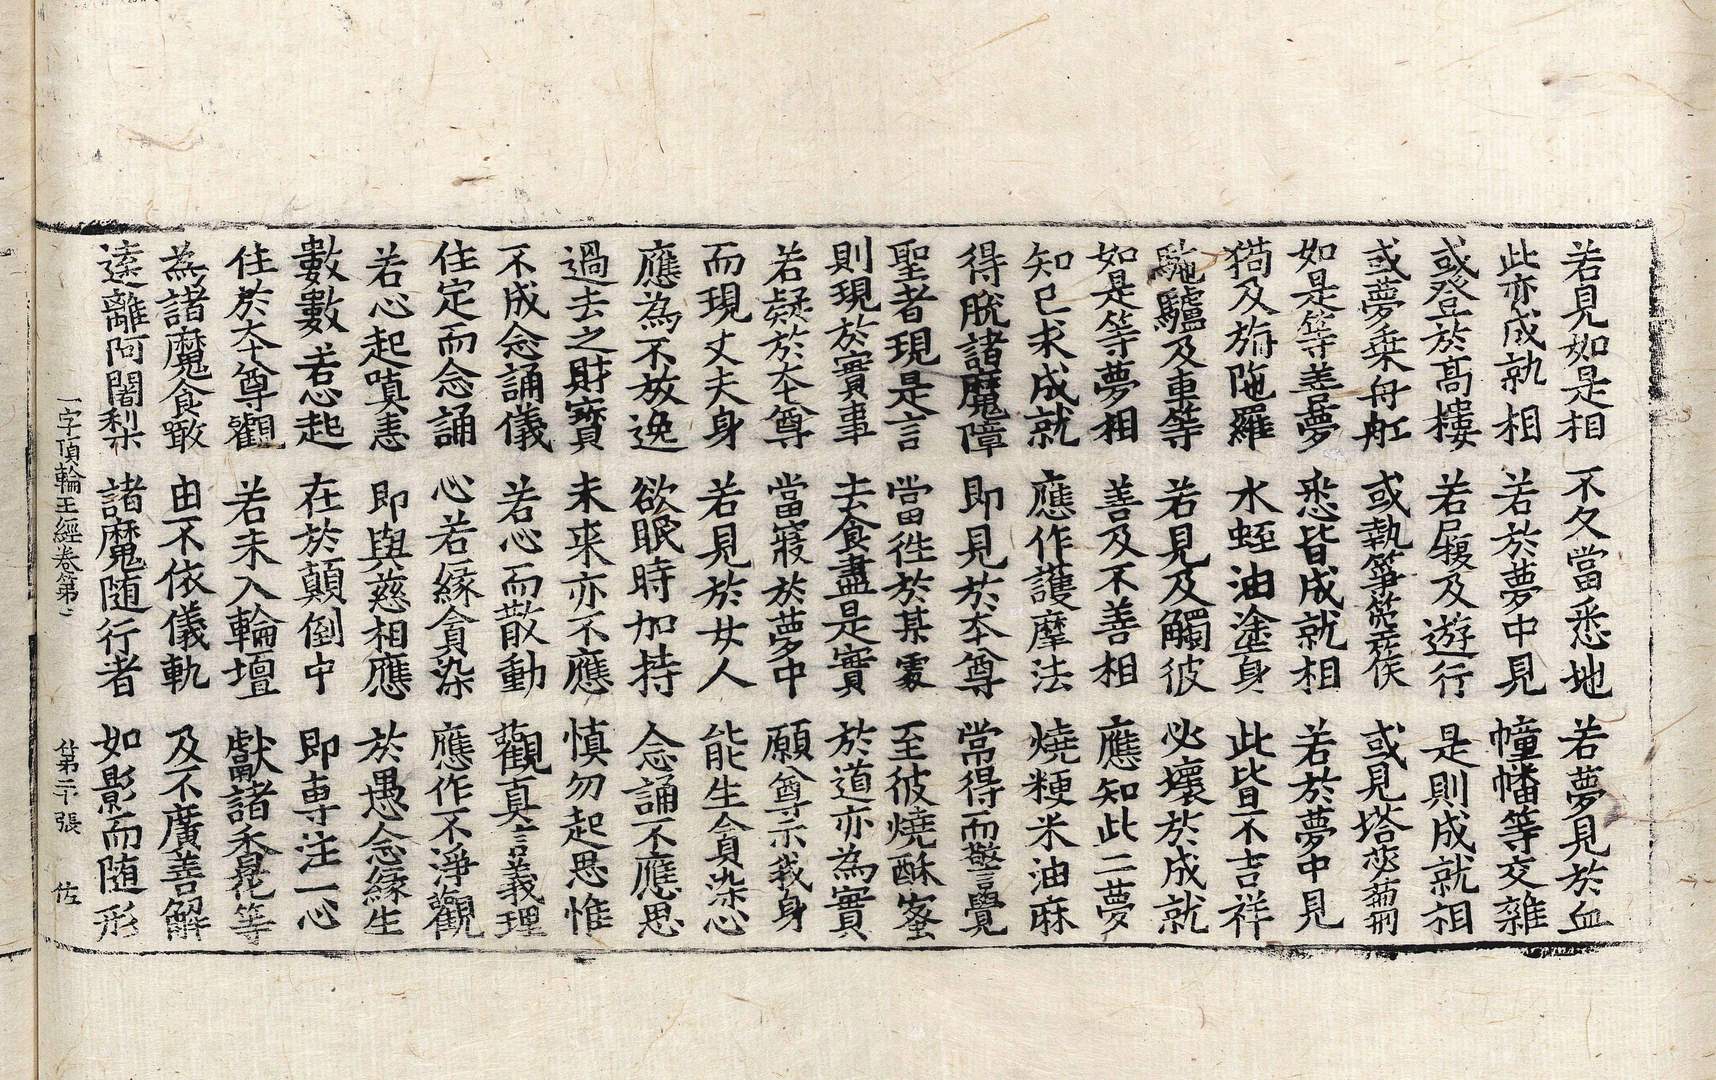 若見如是相 不久當悉地 若夢見於血
此亦成就相 若於夢中見 幢幡等交雜
或登於高樓 若屐及遊行 是則成就相
或夢乗舟舡 或執箏箜篌 或見塔窣
如是等善夢 悉皆成就相 若於夢中見
猫及旃陁羅 水蛭油塗身 此皆不吉祥
駞驢及車等 若見及觸彼 必壞於成就
如是等夢相 善及不善相 應知此二夢
知已求成就 應作護摩法 燒粳米油麻
得脫諸魔障 即見於本尊 常得而警覺
聖者現是言 當往於某處 至彼燒酥蜜
則現於實事 去食盡是實 於道亦為實
若疑於本尊 當寢於夢中 願尊示我身
而現丈夫身 若見於女人 能生貪染心
應為不放逸 欲眠時加持 念誦不應思
過去之財寶 未来亦不應 慎勿起思惟
不成念誦儀 若心而散動 觀真言義理
住定而念誦 心若緣貪染 應作不淨觀
若心起嗔恚 即與慈相應 於愚念緣生
數數若心起 在於顛倒中 即専注一心
住於本尊觀 若未入輪壇 獻諸香花等
為諸魔食噉 由不依儀軌 及不廣善解
遠離阿闍梨 諸魔随行者 如影而随形
一字頂輪王經卷第二 第二十張 佐